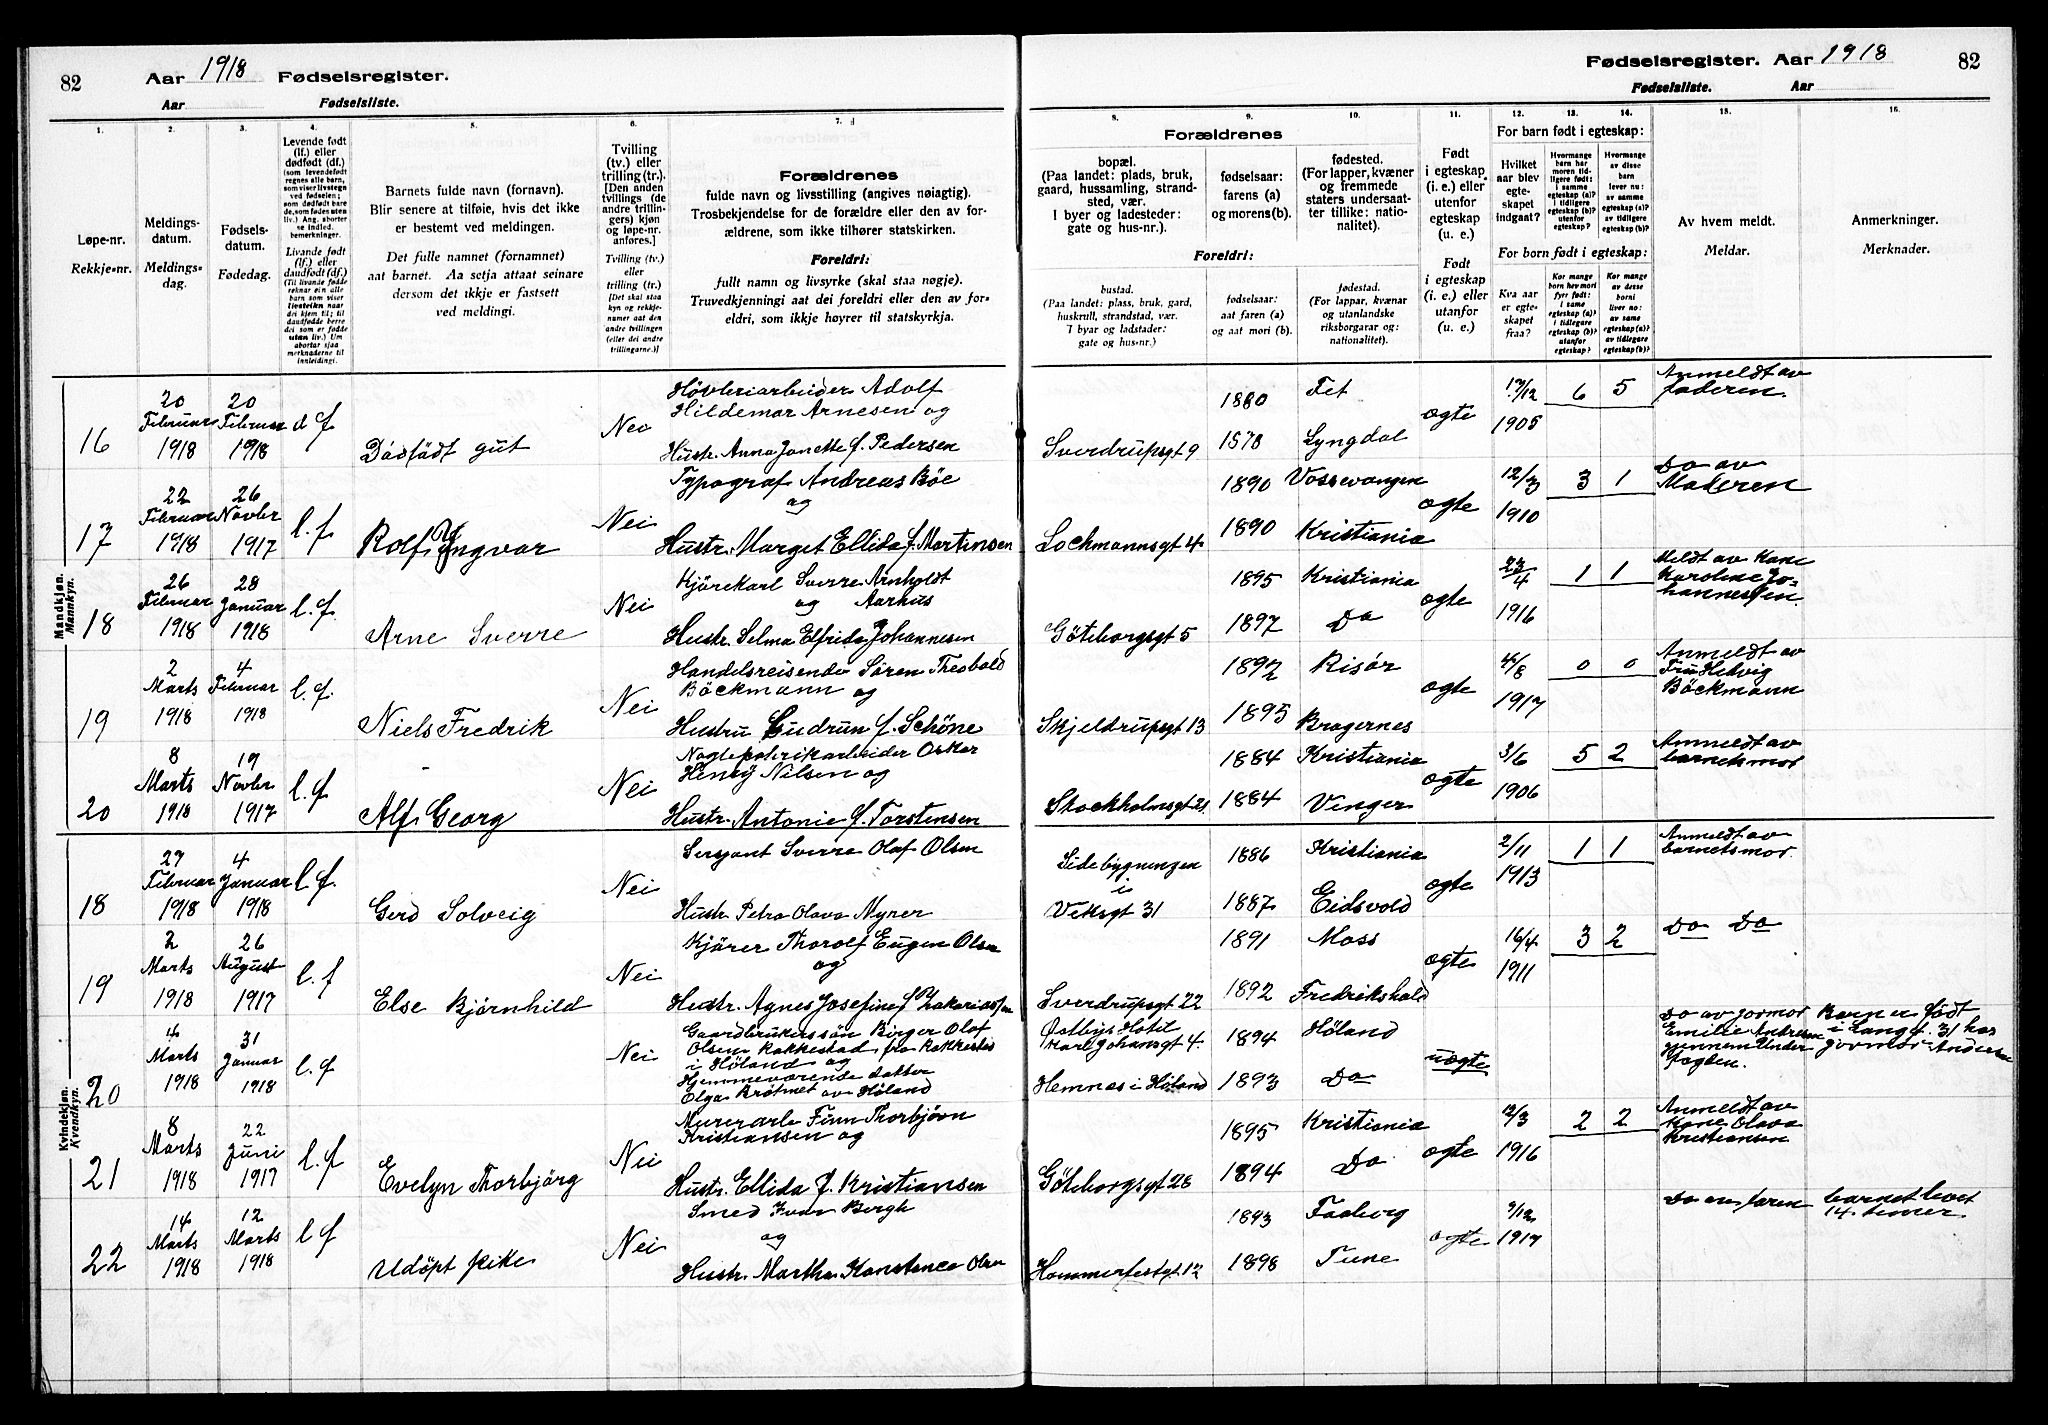 82
Aar 1918 Fødselsregister.
Aar Fødselsliste.
Fødselsregister. Aar 1918
82
Fødselsliste. Aar
1.
Løpe-nr.
Rekkje-nr.
2.
Meldings-
datum.
Meldings-
dag.
3.
Fødsels-
datum.
Fødedag.
4.
Levende født
(lf.) eller
dødfødt (df.)
(som levendefødt
regnes alle barn,
som viser livstegn
ved fødselen;
som dødfødt bare
de, som fødes uten
liv.) Ang. aborter
se indled.
bemerkninger.
Livande født
(lf.) eller
daudfødt (df.)
(Til livande fødde
reknar ein alle
barn som viser
livsteikn naar
dei kjem til; til
daudfødde berre
dei som er fødde
utan liv.) Um
abortar sjaa
merknaderne til
innleidingi.
5.
Barnets fulde navn (fornavn).
Blir senere at tilføie, hvis det ikke
er bestemt ved meldingen.
Det fulle namnet (fornamnet)
aat barnet. Aa setja attaat seinare
dersom det ikkje er fastsett
ved meldingi.
6.
Tvilling
(tv.) eller
trilling (tr.).
[Den anden
tvillings (de
andre trillin-
gers) kjøn
og løpe-nr.
anføres.]
Tvilling (tv.)
eller
trilling (tr.)
[Det skal staa
kyn og rekkje-
numer aat den
andre tvillingen
(eller dei andre
trillingarne.)]
7.
Forældrenes
fulde navn og livsstilling (angives nøiagtig).
Trosbekjendelse for de forældre eller den av for-
ældrene, som ikke tilhører statskirken.
Foreldri:
fullt namn og livsyrke (skal staa nøgje).
Truvedkjenningi aat dei foreldri eller den av for-
eldri, som ikkje høyrer til statskyrkja.
Forældrenes
8.
bopæl.
(Paa landet: plads, bruk,
gaard, hussamling, strand-
sted, vær.
I byer og ladesteder:
gate og hus-nr.).
Foreldri:
bustad.
(Paa landet: plass, bruk, gard,
huskrull, strandstad, vær.
I byar og ladstader:
gate og hus-nr.)
9.
fødselsaar:
farens (a)
og morens (b).
fødselsaar:
aat faren (a)
og aat mori (b).
10.
fødested.
(For lapper, kvæner
og fremmede
staters undersaat-
ter tillike: natio-
nalitet).
fødestad.
(For lappar, kvænar
og utanlandske
riksborgarar og:
nationalitet).
11.
Født
i egteskap
(i. e.) eller
utenfor
egteskap
(u. e.).
Født
i egteskap
(i. e.) eller
utanfor
(u. e.).
For barn født i egteskap:
12.
Hvilket
aar blev
egte-
skapet
indgaat?
13.
Hvormange
barn har
moren tid-
ligere født:
i samme
egteskap (a)?
utenfor
egteskap (b)?
14.
Hvormange
av disse
barn
lever nu:
av samme
egteskap (a)?
av tidligere
egteskap (b)?
For barn født i egteskap:
Kva aar
er egte-
skapet
fraa?
Kor mange
barn hev mori
fyrr født:
i same
egteskap (a)
i tidlegare
egteskap (b)?
utanfor
egteskap?
Kor mange
av desse
borni
liver no:
av same
egteskap (a)?
av tidlegare
egteskap (b)?
15.
Av hvem meldt.
Meldar.
16.
Anmerkninger.
Merknader.
Mandkjøn.
Mannkyn.
16
20 Februar 1918
20 Februar 1918
d f
Dødfödt gut
Nei
Høvleriarbeider Adolf
Hildemar Arnesen og
Hustr. Anna Janette f. Pedersen
Sverdrupsgt 9
1880
1878
Fet
Lyngdal
ægte
17/12
1905
6
5
Anmeldt av
faderen.
17
22 Februar 1918
26 Novbr 1917
l. f.
Rolf Yngvar
Nei
Typograf Andreas Böe
og
Hustr. Marget Ellida f. Martinsen
Lochmannsgt 4
1890
1890
Vossevangen
Kristiania
ægte
12/3
1910
3
1
Do av
Moderen
18
26 Februar 1918
28 Januar 1918
l. f.
Arne Sverre
Nei
Kjörekarl Sverre Arnholdt
og Aarhus
Hustr. Selma Elfrida Johannesen
Göteborgsgt 5
1895
1897
Kristiania
Do
ægte
23/4
1916
1
1
Meldt av Kone
Karoline Jo-
hannessen.
19
2 Marts 1918
4 Februar 1918
l. f.
Niels Fredrik
Nei
Handelsreisende Sören Theobald
Böckmann og
Hustru Gudrun f. Schöne
Skjeldrupsgt 13
1892
1895
Risör
Bragernes
ægte
4/8
1917
0
0
Anmeldt av
Fru Hedvig
Böckmann
20
8 Marts 1918
19 Novbr 1917
l. f
Alf Georg
Nei
Henry Nilsen og
Hustr. Antonie f. Torstensen
Stockholmsgt 21
1884
1884
Kristiania
Vinger
ægte
3/6
1906
5
2
Anmeldt av
barnets mor
Kvindekjøn.
Kvendkyn.
18
27 Februar 1918
4 Januar 1918
l f.
Gerd Solveig
Nei
Sersjant Sverre Olaf Olsen
Hustr. Petra Olava Nyrer
Sidebygningen
i
Veksgt 31
1886
1887
Kristiania
Eidsvold
ægte
2/11
1913
1
1
Anmeldt av
barnets mor.
19
2 Marts 1918
26 August 1917
l. f
Else Bjørnhild
Nei
Kjörer Thorolf Eugen Olsen
og
Hustr. Agnes Josefine f. Zakariassen
Sverdrupsgt 22
1891
1892
Moss
Fredrikshald
ægte
16/4
1911
3
2
Do Do
20
4 Marts 1918
31 Januar 1918
l. f
Nei
Gaardbrukersøn Birger Olaf
Olsen Kakkestad fra Kakkestad
i Höland og
Hjemmeværende datter
Elga Bråtnet av Höland
Östbys Hotel
Karl Johansgt 4.
Hemnes i Höland
1894
1893
Höland
Do
uægte
Do av jormor
Emilie Andresen
gjennem Under
fogden.
Barn er födt
i Langt. 31 hos
jormor Andersen
21
8 Marts 1918
22 Juni 1917
l. f
Evelyn Thorbjörg
Nei
Murerarb. Finn Thorbjörn
Kristiansen og
Hustr. Ellida f. Kristiansen
Göteborgsgt 28
1895
1894
Kristiania
Do
ægte
12/3
1916
2
2
Anmeldt av
Kone Olava
Kristiansen
22
14 Marts 1918
12 Marts 1918
l f
Udöpt pike
Nei
Smed Ivar Bergh
og
Hustr. Martha Konstance Olsen
Hammerfestgt. 12
1893
1898
Faaberg
Tune
ægte
9/12
1917
Do av faren
barnet levet
14. timer.